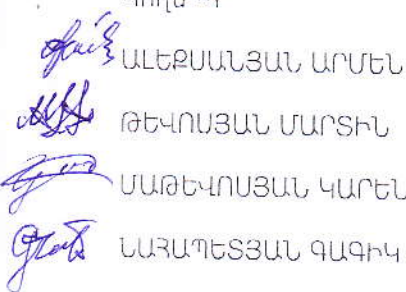 ԱԼԵՔՍԱՆՅԱՆ ԱՐՄԵՆ
ԹԵՎՈՍՅԱՆ ՄԱՐՏԻՆ
ՄԱԹԵՎՈՍՅԱՆ ԿԱՐԵՆ
ՆԱՀԱՊԵՏՅԱՆ ԳԱԳԻԿ